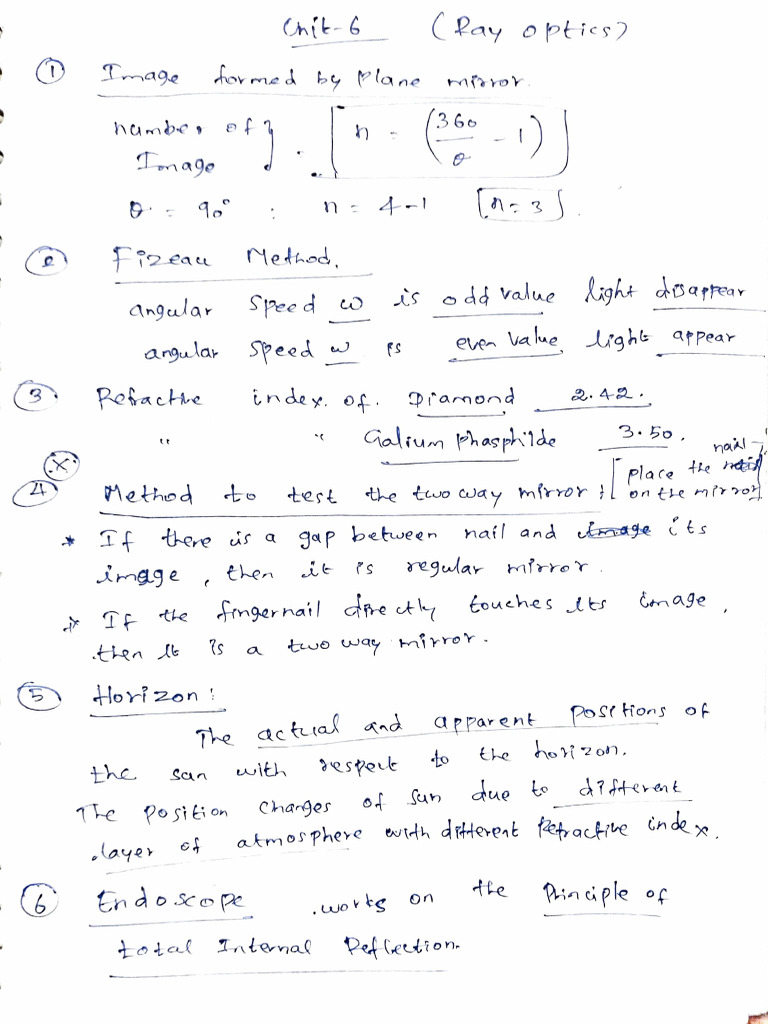 Unit-6 (Ray optics)
① Image formed by Plane mirror.
number of } . [n = (360/θ - 1)]
Image
θ = 90° : n = 4-1 [n=3].
② Fizeau Method.
angular speed ω is odd value light disappear
angular speed ω is even value, light appear
③ Refractive index. of. Diamond 2.42.
" " Galium phasphide 3.50.
(X) nail
④ Method to test the two way mirror : [place the nail
on the mirror]
* If there is a gap between nail and image its
image, then it is regular mirror.
* If the fingernail directly touches its image,
then it is a two way mirror.
⑤ Horizon :
The actual and apparent positions of
the sun with respect to the horizon.
The position changes of sun due to different
layer of atmosphere with different Refractive index.
⑥ Endoscope .works on the Principle of
total Internal Reflection.